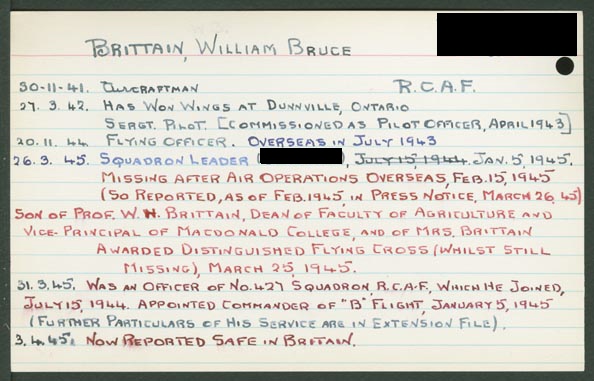 BRITTAIN, WILLIAM BRUCE
30-11-41. Aircraftman R.C.A.F.
27. 3. 42. HAS WON WINGS AT DUNNVILLE, ONTARIO
SERGT. PILOT. [COMMISSIONED AS PILOT OFFICER, APRIL 1943]
20.11. 44. FLYING OFFICER. OVERSEAS IN JULY 1943
26. 3. 45. SQUADRON LEADER ( ), JULY 15, 1944. JAN. 5, 1945.
MISSING AFTER AIR OPERATIONS OVERSEAS, FEB. 15, 1945
(SO REPORTED, AS OF FEB. 1945, IN PRESS NOTICE, MARCH 26, 45)
SON OF PROF. W. H. BRITTAIN, DEAN OF FACULTY OF AGRICULTURE AND
VICE-PRINCIPAL OF MACDONALD COLLEGE, AND OF MRS. BRITTAIN
AWARDED DISTINGUISHED FLYING CROSS (WHILST STILL
MISSING), MARCH 25, 1945.
31. 3. 45. WAS AN OFFICER OF NO. 427 SQUADRON, R.C.A.F., WHICH HE JOINED,
JULY 15, 1944. APPOINTED COMMANDER OF "B" FLIGHT, JANUARY 5, 1945
(FURTHER PARTICULARS OF HIS SERVICE ARE IN EXTENSION FILE).
3. 4. 45. NOW REPORTED SAFE IN BRITAIN.